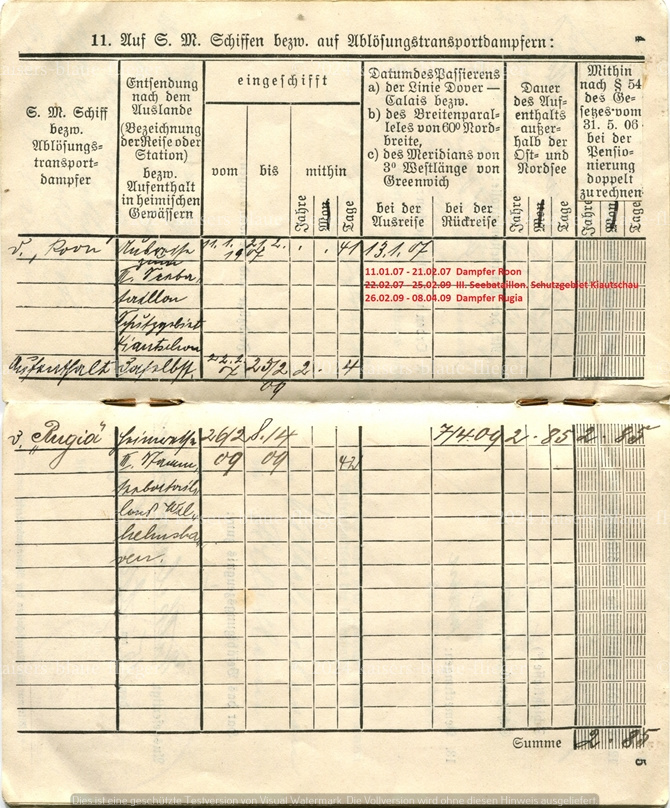 11. Auf S. M. Schiffen bezw. auf Ablösungstransportdampfern:
4
S. M. Schiff
bezw.
Ablösungs-
transport-
dampfer
Entsendung
nach dem
Auslande
(Bezeichnung
der Reise oder
Station)
bezw.
Aufenthalt
in heimischen
Gewässern
eingeschifft
vom
bis
mithin
Jahre
Mon.
Tage
Datum des Passierens
a) der Linie Dover —
Calais bezw.
b) des Breitenparal-
leles von 60° Nord-
breite,
c) des Meridians von
3° Westlänge von
Greenwich
bei der
Ausreise
bei der
Rückreise
Dauer
des Auf-
enthalts
außer-
halb der
Ost- und
Nordsee
Jahre
Mon.
Tage
Mithin
nach § 54
des Ge-
setzes vom
31. 5. 06
bei der
Pensio-
nierung
doppelt
zu rechnen
Jahre
Mon.
Tage
D. „Roon“ Ausreise 11.1. 21.2. . . 41 13.1.07
zum 19 07
III. Seeba-
taillon
Schutzgebiet
Kiautschou
Aufenthalt daselbst. 22.2. 25/2 2 . 4
07 09
11.01.07 - 21.02.07 Dampfer Roon
22.02.07 - 25.02.09 III. Seebataillon. Schutzgebiet Kiautschau
26.02.09 - 08.04.09 Dampfer Rugia
D. „Rugia“ Heimreise 26/2 8./4 7/4 09 2 . 85 2 . 85
09 09 42
seebatail-
lons Wil-
helmsha-
ven.
Summe 2 . 85
5
Dies ist eine geschützte Testversion von Visual Watermark. Die Vollversion wird ohne diesen Hinweis ausgeliefert